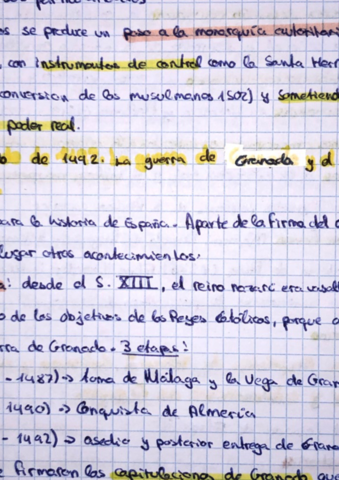 os se produce un paso a la monarquía autoritari
, con instrumentos de control como la Santa Her
conversion de los musulmanes 1502) y sometiend
poder real.
de 1492. La guerra de Granada y d
para la historia de España. Aparte de la firma del
lugar otros acontecimientos:
: desde el S. XIII, el reino nazarí era vasall
o de los objetivos de los Reyes Católicos, porque
rra de Granada. 3 etapas:
- 1487) -> toma de Málaga y la Vega de Gran
1490) -> Conquista de Almería
- 1492) -> asedio y posterior entrega de Grana
e firmaron las capitulaciones de Granada que